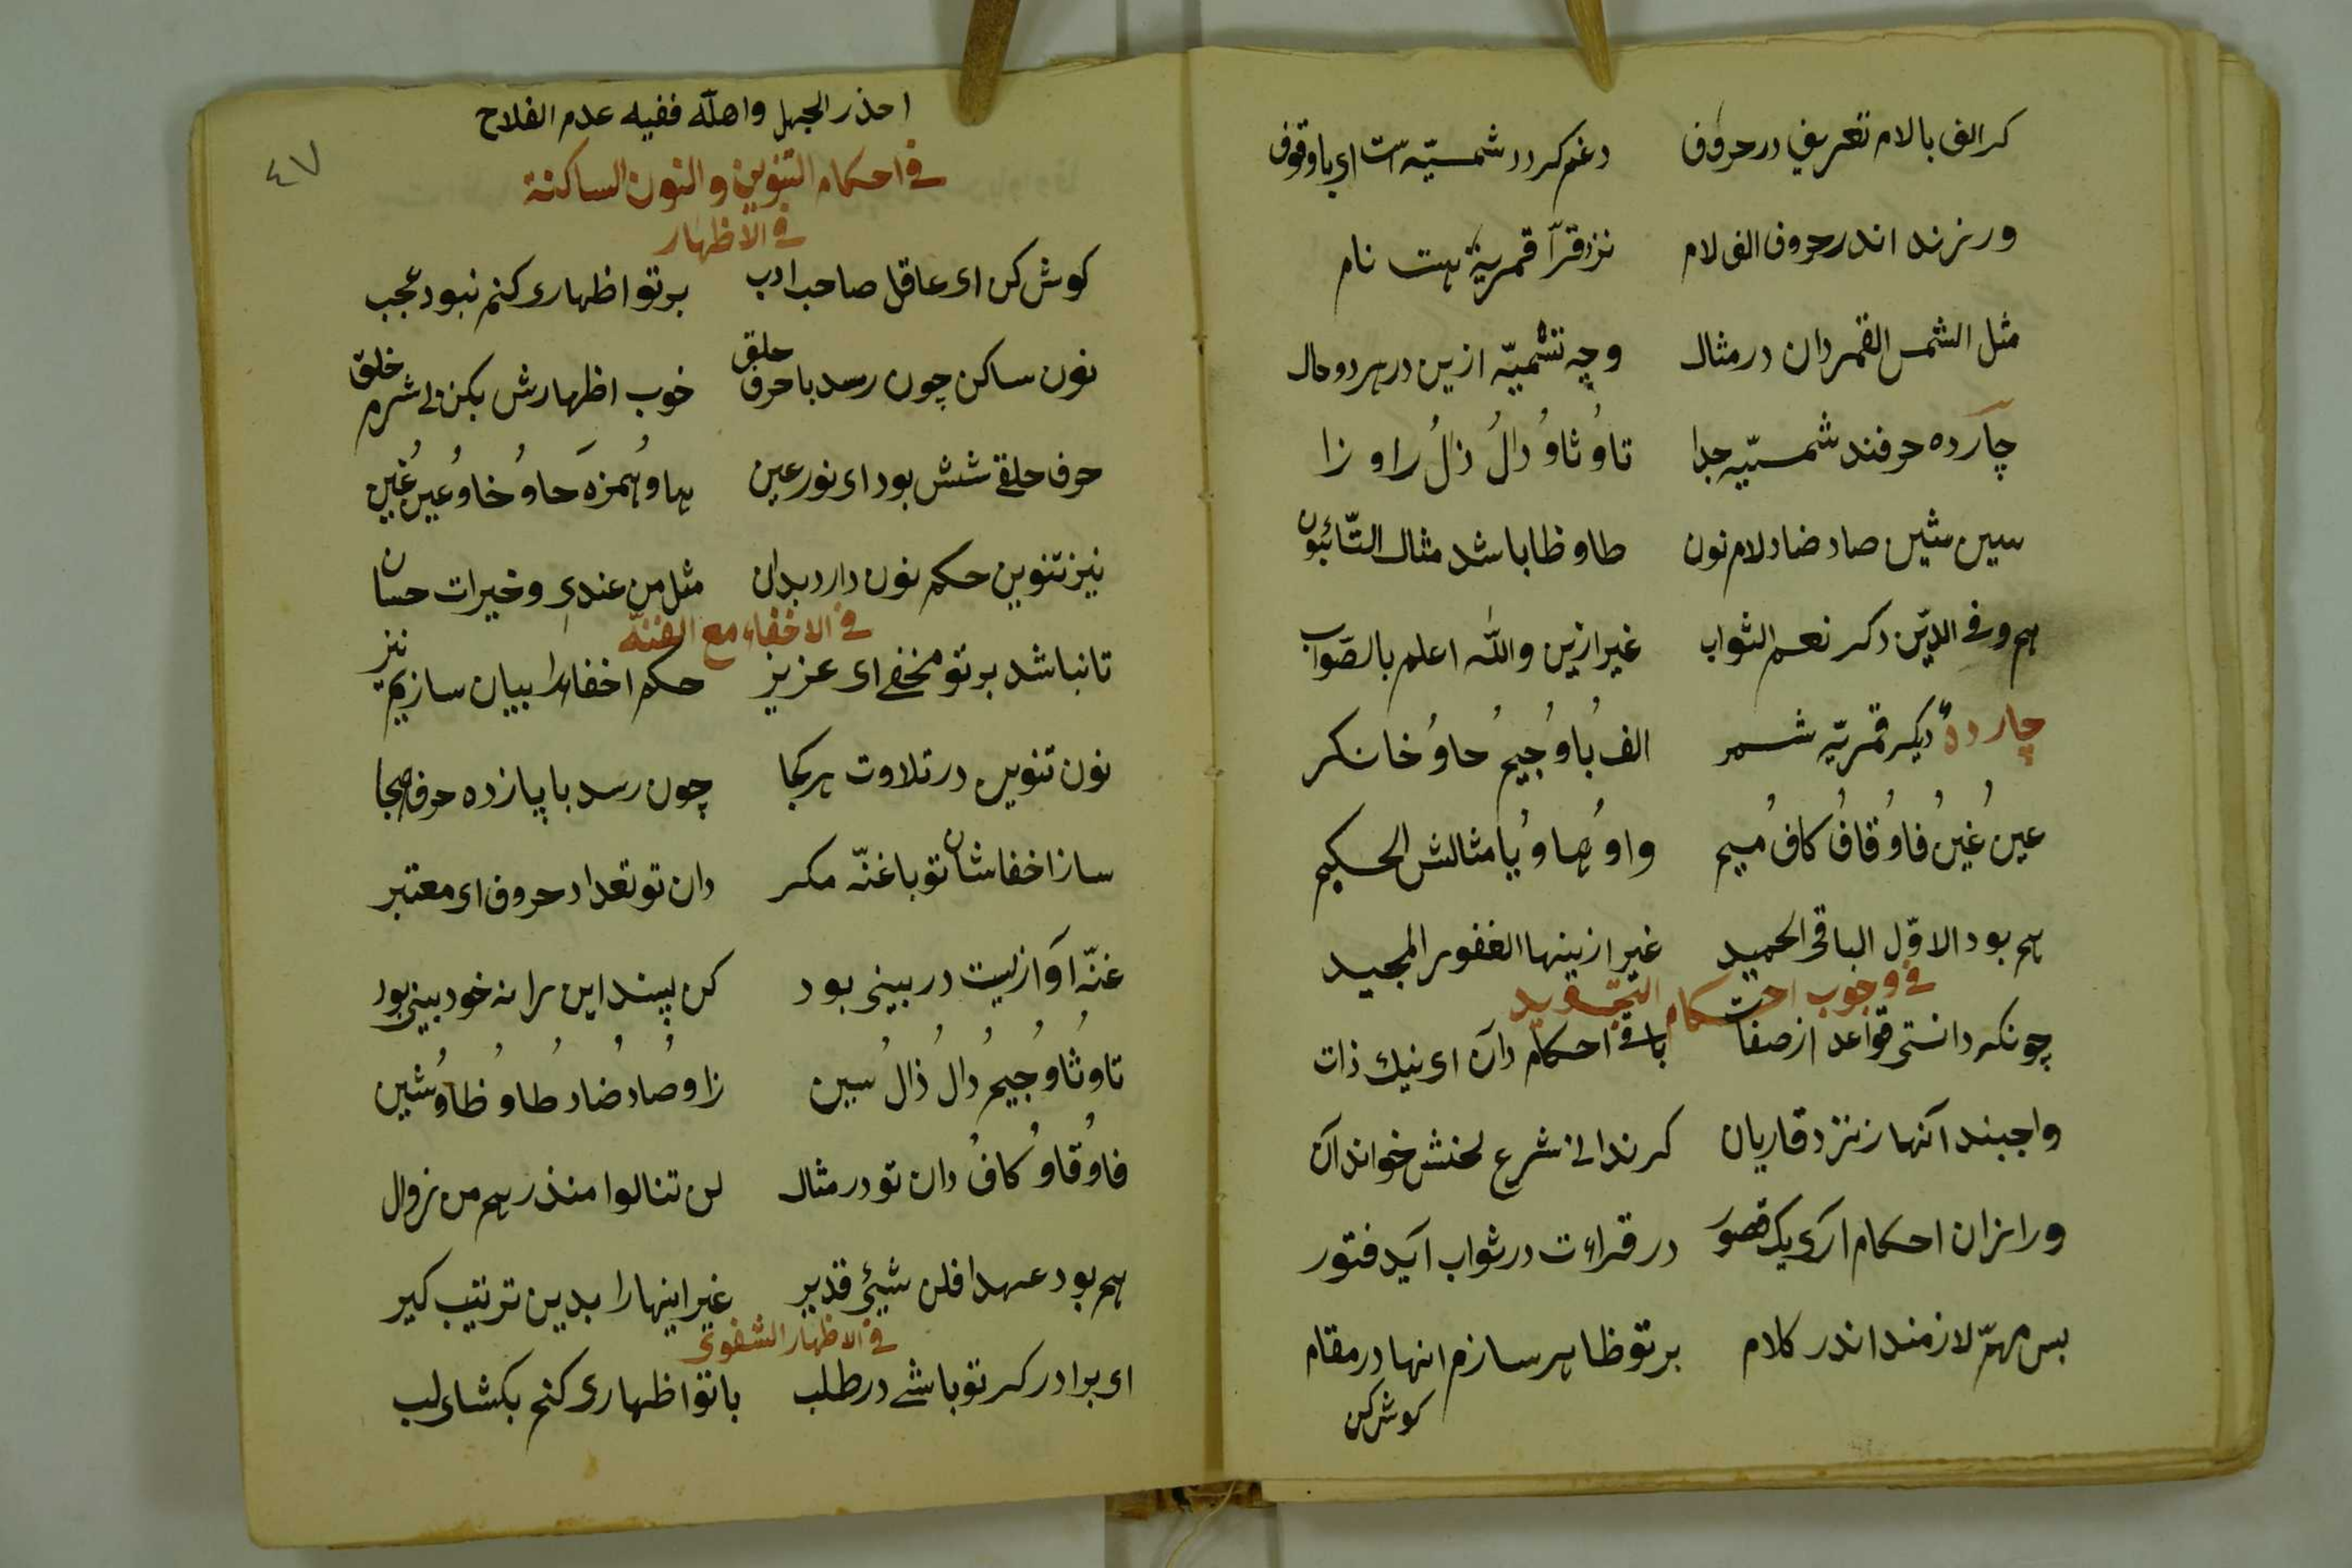 کر الف با لام تعریفی در حروف دغم کردد شمسیّه است ای با وقوف
ور نزند اندر حروف الف لام نزد قرّا قمریّه هست نام
مثل الشمس القمر دان در مثال وجه تشمیّه ازین در هر دو حال
چارده حرفند شمسیّه جدا تا و ثا و دال ذال را و زا
سین شین صاد ضاد لام نون طا و ظا باشد مثال التّائبون
هم و فی الدّین دکر نعم الثواب غیر ازین والله اعلم بالصّواب
چارده دیکر قمریّه شمر الف با و جیم حا و خا نکر
عین غین فا و قاف کاف میم واو ها و یا مثالش الحکیم
هم بود الاوّل الباقی الحمید غیر ازینها الغفور المجید
فی وجوب احکام التجوید
چونکه دانستی قواعد از صفات باقی احکام دان ای نیك ذات
واجبند آنها ز نزد قاریان کر ندانی شرع لحنش خواند آن
ور ازان احکام آری یک قصور در قراءت در ثواب آید فتور
بس مهمّ لازمند اندر کلام بر تو ظاهر سازم انها در مقام
کوش کن
٤٧
احذر الجهل واهله ففیه عدم الفلاح
فی احکام التنوین و النون الساکنة
فی الاظهار
کوش کن ای عاقل صاحب ادب بر تو اظهاری کنم نبود عجب
نون ساکن چون رسد با حرف حلق خوب اظهارش بکن بی شرم خلق
حرف حلقی شش بود ای نور عین ها و همزه حا و خا و عین غین
نیز تنوین حکم نون دارد بدان مثل من عندی و خیرات حسان
فی الاخفاء مع الغنّه
تا نباشد بر تو مخفی ای عزیز حکم اخفا را بیان سازیم نیز
نون تنوین در تلاوت هر کجا چون رسد با پانزده حرف هجا
ساز اخفاشان تو با غنّه مکر دان تو تعداد حروف ای معتبر
غنّه آوازیست در بینی بود کن پسند این را نه خود بینی بود
تا و ثا و جیم دال ذال سین زا و صاد ضاد طا و ظا و شین
فا و قاو کاف دان تو در مثال لن تنالوا منذر هم من زوال
هم بود عهدا فلن شیئ قدیر غیر اینها را بدین ترتیب کیر
فی الاظهار الشفوی
ای برادر کر تو باشی در طلب با تو اظهاری کنم بکشای لب